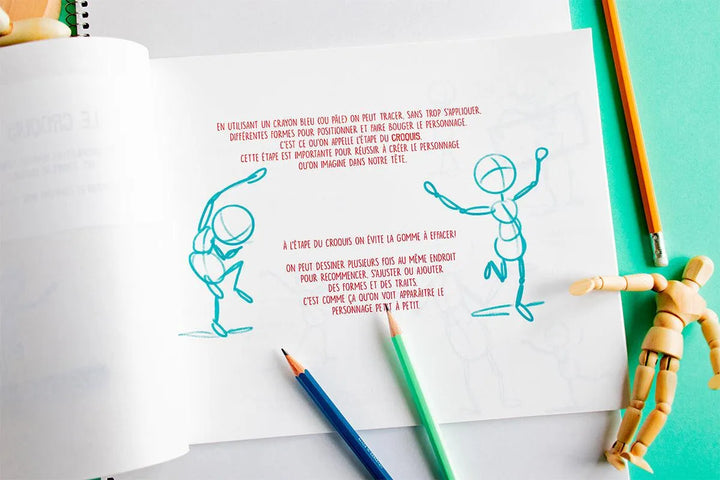 LE CROQUIS
EN UTILISANT UN CRAYON BLEU (OU PÂLE) ON PEUT TRACER, SANS TROP S'APPLIQUER,
DIFFÉRENTES FORMES POUR POSITIONNER ET FAIRE BOUGER LE PERSONNAGE.
C'EST CE QU'ON APPELLE L'ÉTAPE DU CROQUIS.
CETTE ÉTAPE EST IMPORTANTE POUR RÉUSSIR À CRÉER LE PERSONNAGE
QU'ON IMAGINE DANS NOTRE TÊTE.
À L'ÉTAPE DU CROQUIS ON ÉVITE LA GOMME À EFFACER!
ON PEUT DESSINER PLUSIEURS FOIS AU MÊME ENDROIT
POUR RECOMMENCER, S'AJUSTER OU AJOUTER
DES FORMES ET DES TRAITS.
C'EST COMME ÇA QU'ON VOIT APPARAÎTRE LE
PERSONNAGE PETIT À PETIT.